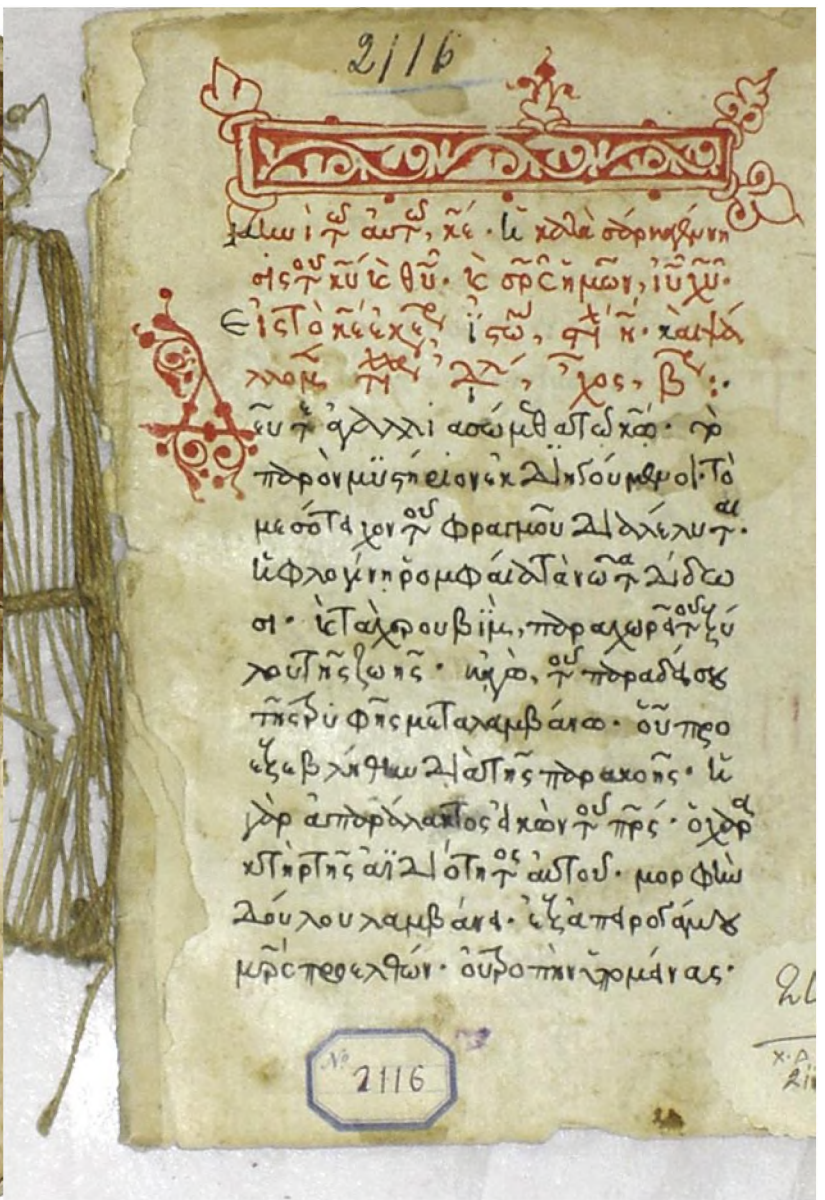 2116
Μηνὶ τῷ αὐτῷ, κε. ἡ κατὰ σάρκα γέννη
σις τοῦ κυ καὶ θυ καὶ σρς ἡμῶν, ιυ χυ.
Εἰς τὸ κε ἐκε ἱστῶ, στι η. καὶ ψάλ
λομεν στιχ ἦχος, β
εῦτε ἀγαλλιασώμεθα τῷ κω. τὸ
παρὸν μυστήριον ἐκδιηγούμενοι. τὸ
μεσότειχον τοῦ φραγμοῦ διαλέλυται.
ἡ φλογίνη ῥομφαία τὰ νῶτα δίδω
σι. καὶ τὰ χερουβὶμ, παραχωρεῖ τοῦ ξύ
λου τῆς ζωῆς. κἀγὼ, τοῦ παραδείσου
τῆς τρυφῆς μεταλαμβάνω. οὗ προ
εξεβλήθην διὰ τῆς παρακοῆς. ἡ
γὰρ ἀπαράλλακτος εἰκὼν τοῦ πρς. ὁ χαρα
κτὴρ τῆς ἀϊδιότητος αὐτοῦ. μορφὴν
δούλου λαμβάνει. ἐξ ἀπειρογάμου
μρς προελθών. οὐ τροπὴν ὑπομείνας.
No 2116